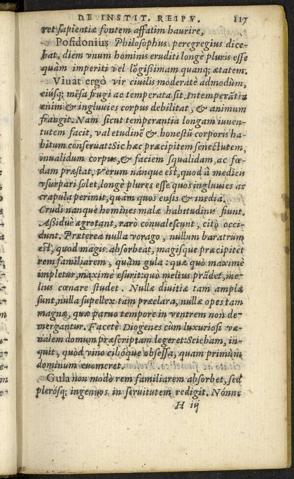 DE INSTIT. REIPV. 117
ret sapientiæ fontem affatim haurire.
Posidonius Philosophus peregregius dice-
bat, diem vnum hominis eruditi longè pluris esse
quàm imperiti vel lõgissimam quamq; ætatem.
Viuat ergò vir ciuilis moderatè admodùm,
eiusq; mẽsa frugi ac temperata sit. Intemperãtia
enim & ingluuies corpus debilitat, & animum
frangit. Nam sicut temperantia longam iuuen-
tutem facit, valetudinẽ & honestũ corporis ha-
bitum conseruat: Sic hæc præcipitem senectutem,
inualidum corpus, & faciem squalidam, ac fœ-
dam præstat. Verum nanque est, quod à medicis
vsurpari solet, longè plures esse quos ingluuies ac
crapula perimit, quàm quos ensis & inedia.
Crudi nanque homines malæ habitudinis fiunt.
Assiduè ægrotant, rarò conualescunt, citò occi-
dunt. Præterea nulla vorago, nullum baratrum
est, quod magis absorbeat, magisque præcipitet
rem familiarem, quàm gula: quæ quò maximè
impletur, maximè esuritq; quò meliùs prãdet, me-
lius cœnare studet. Nullæ diuitiæ tam amplæ
sunt, nulla supellex tam præclara, nullæ opes tam
magnæ, quæ paruo tempore in ventrem non de-
mergantur. Facetè Diogenes cùm luxuriosi væ-
nalem domum præscriptam legeret: Scibam, in-
quit, quòd vino cibóque obsessa, quam primùm
dominum euomeret.
Gula non modò rem familiarem absorbet, sed
plerósq; ingenuos in seruitutem redigit. Nonne
H iij